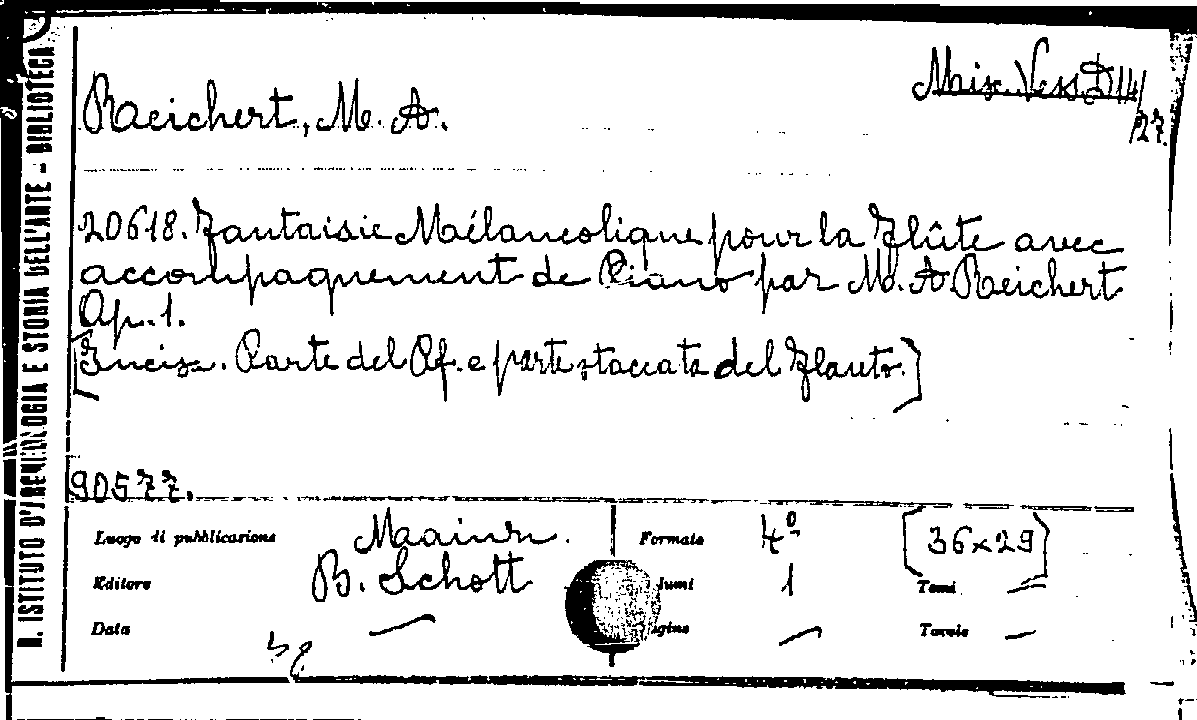 R. ISTITUTO D'ARCHEOLOGIA E STORIA DELL'ARTE - BIBLIOTECA
Reichert, M. A.
Misc. Vess. D 14/
27.
20618. Fantaisie Mélancolique pour la Flûte avec
accompagnement de Piano par M. A Reichert
Op. 1.
[Incis. Parte del Pf. e parte staccata del Flauto.]
90577.
Luogo di pubblicazione Mainz. Formato 4º [36x29]
Editore B. Schott lumi 1 Tomi —
Data — gine — Tavole —